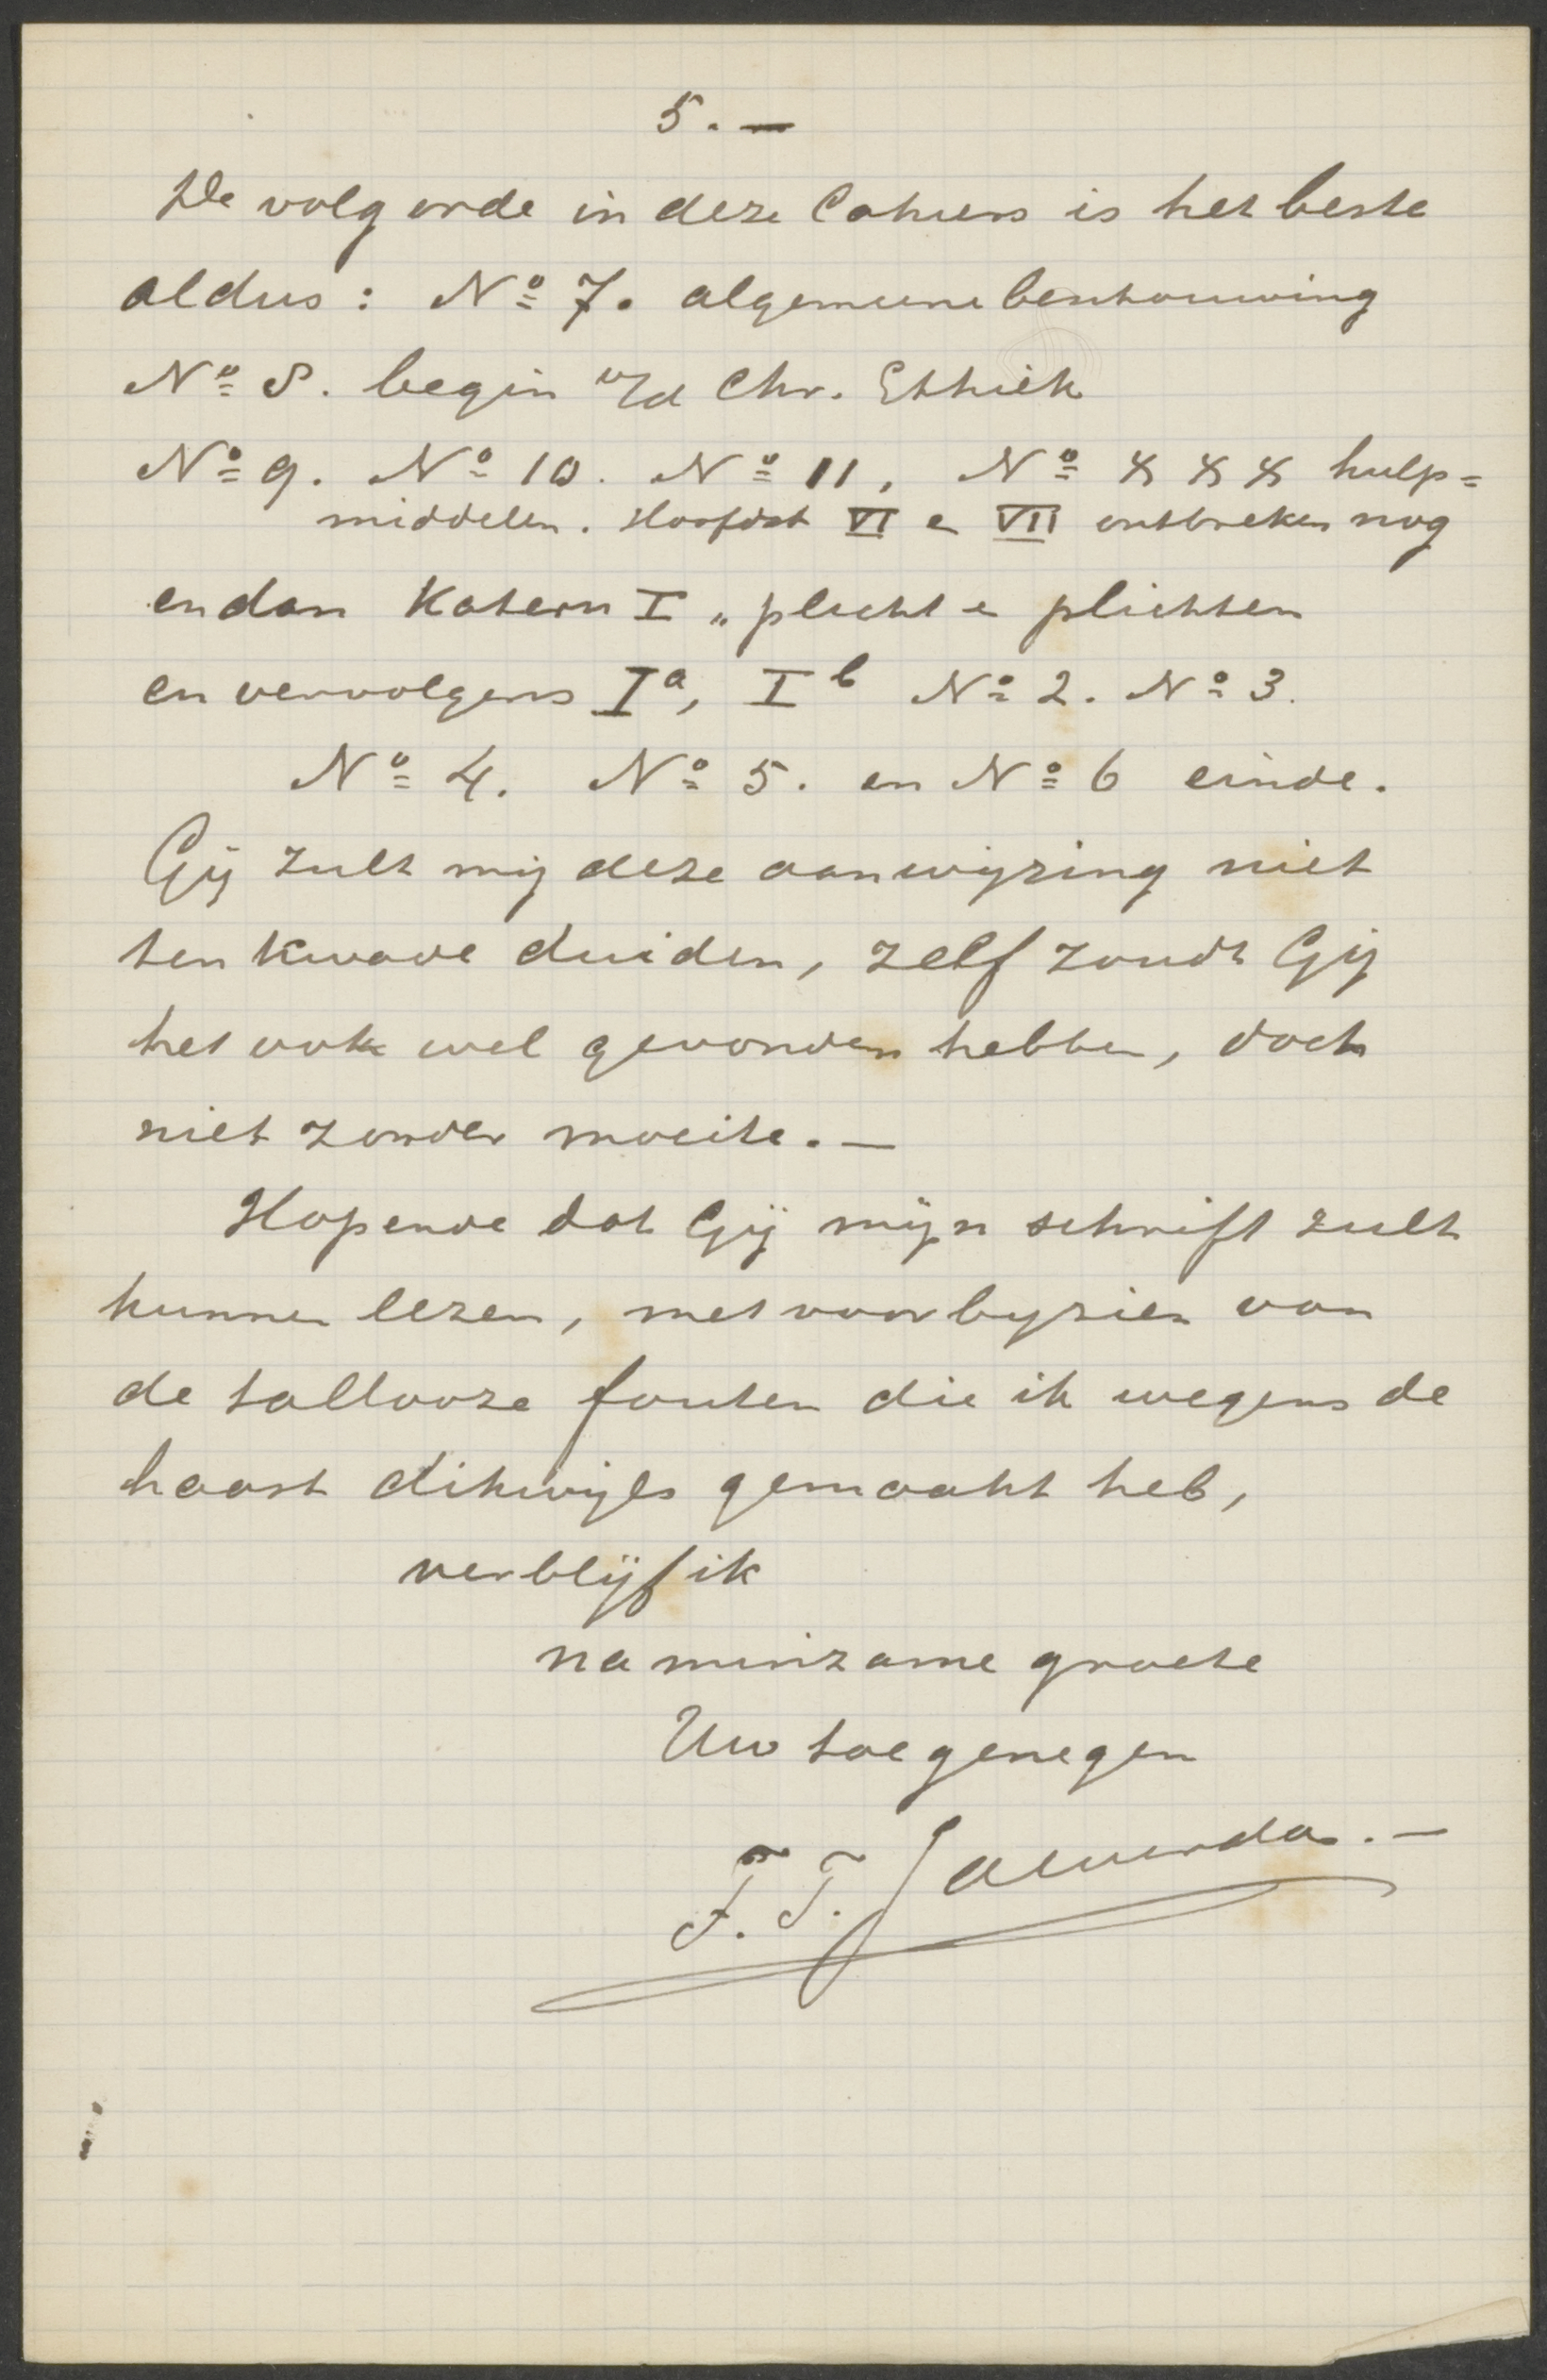 5. —
De volgorde in deze Cahiers is het beste
aldus: Nº 7. algemeene beschouwing
Nº 8. begin v/d Chr. Ethiek
Nº 9. Nº 10. Nº 11, Nº xxx hulp=
middelen. Hoofdst VI e VII ontbreken nog
en dan Katern I „ plicht e plichten
en vervolgens Iª, I b Nº 2. Nº 3.
Nº 4. Nº 5. en Nº 6 einde.
Gij zult mij deze aanwijzing niet
ten kwade duiden, zelf zoudt Gij
het ook wel gevonden hebben, doch
niet zonder moeite. —
Hopende dat Gij mijn schrift zult
kunnen lezen, met voorbijzien van
de tallooze fouten die ik wegens de
haast dikwijls gemaakt heb,
verblijf ik
na minzame groete
Uw toegenegen
F. T.